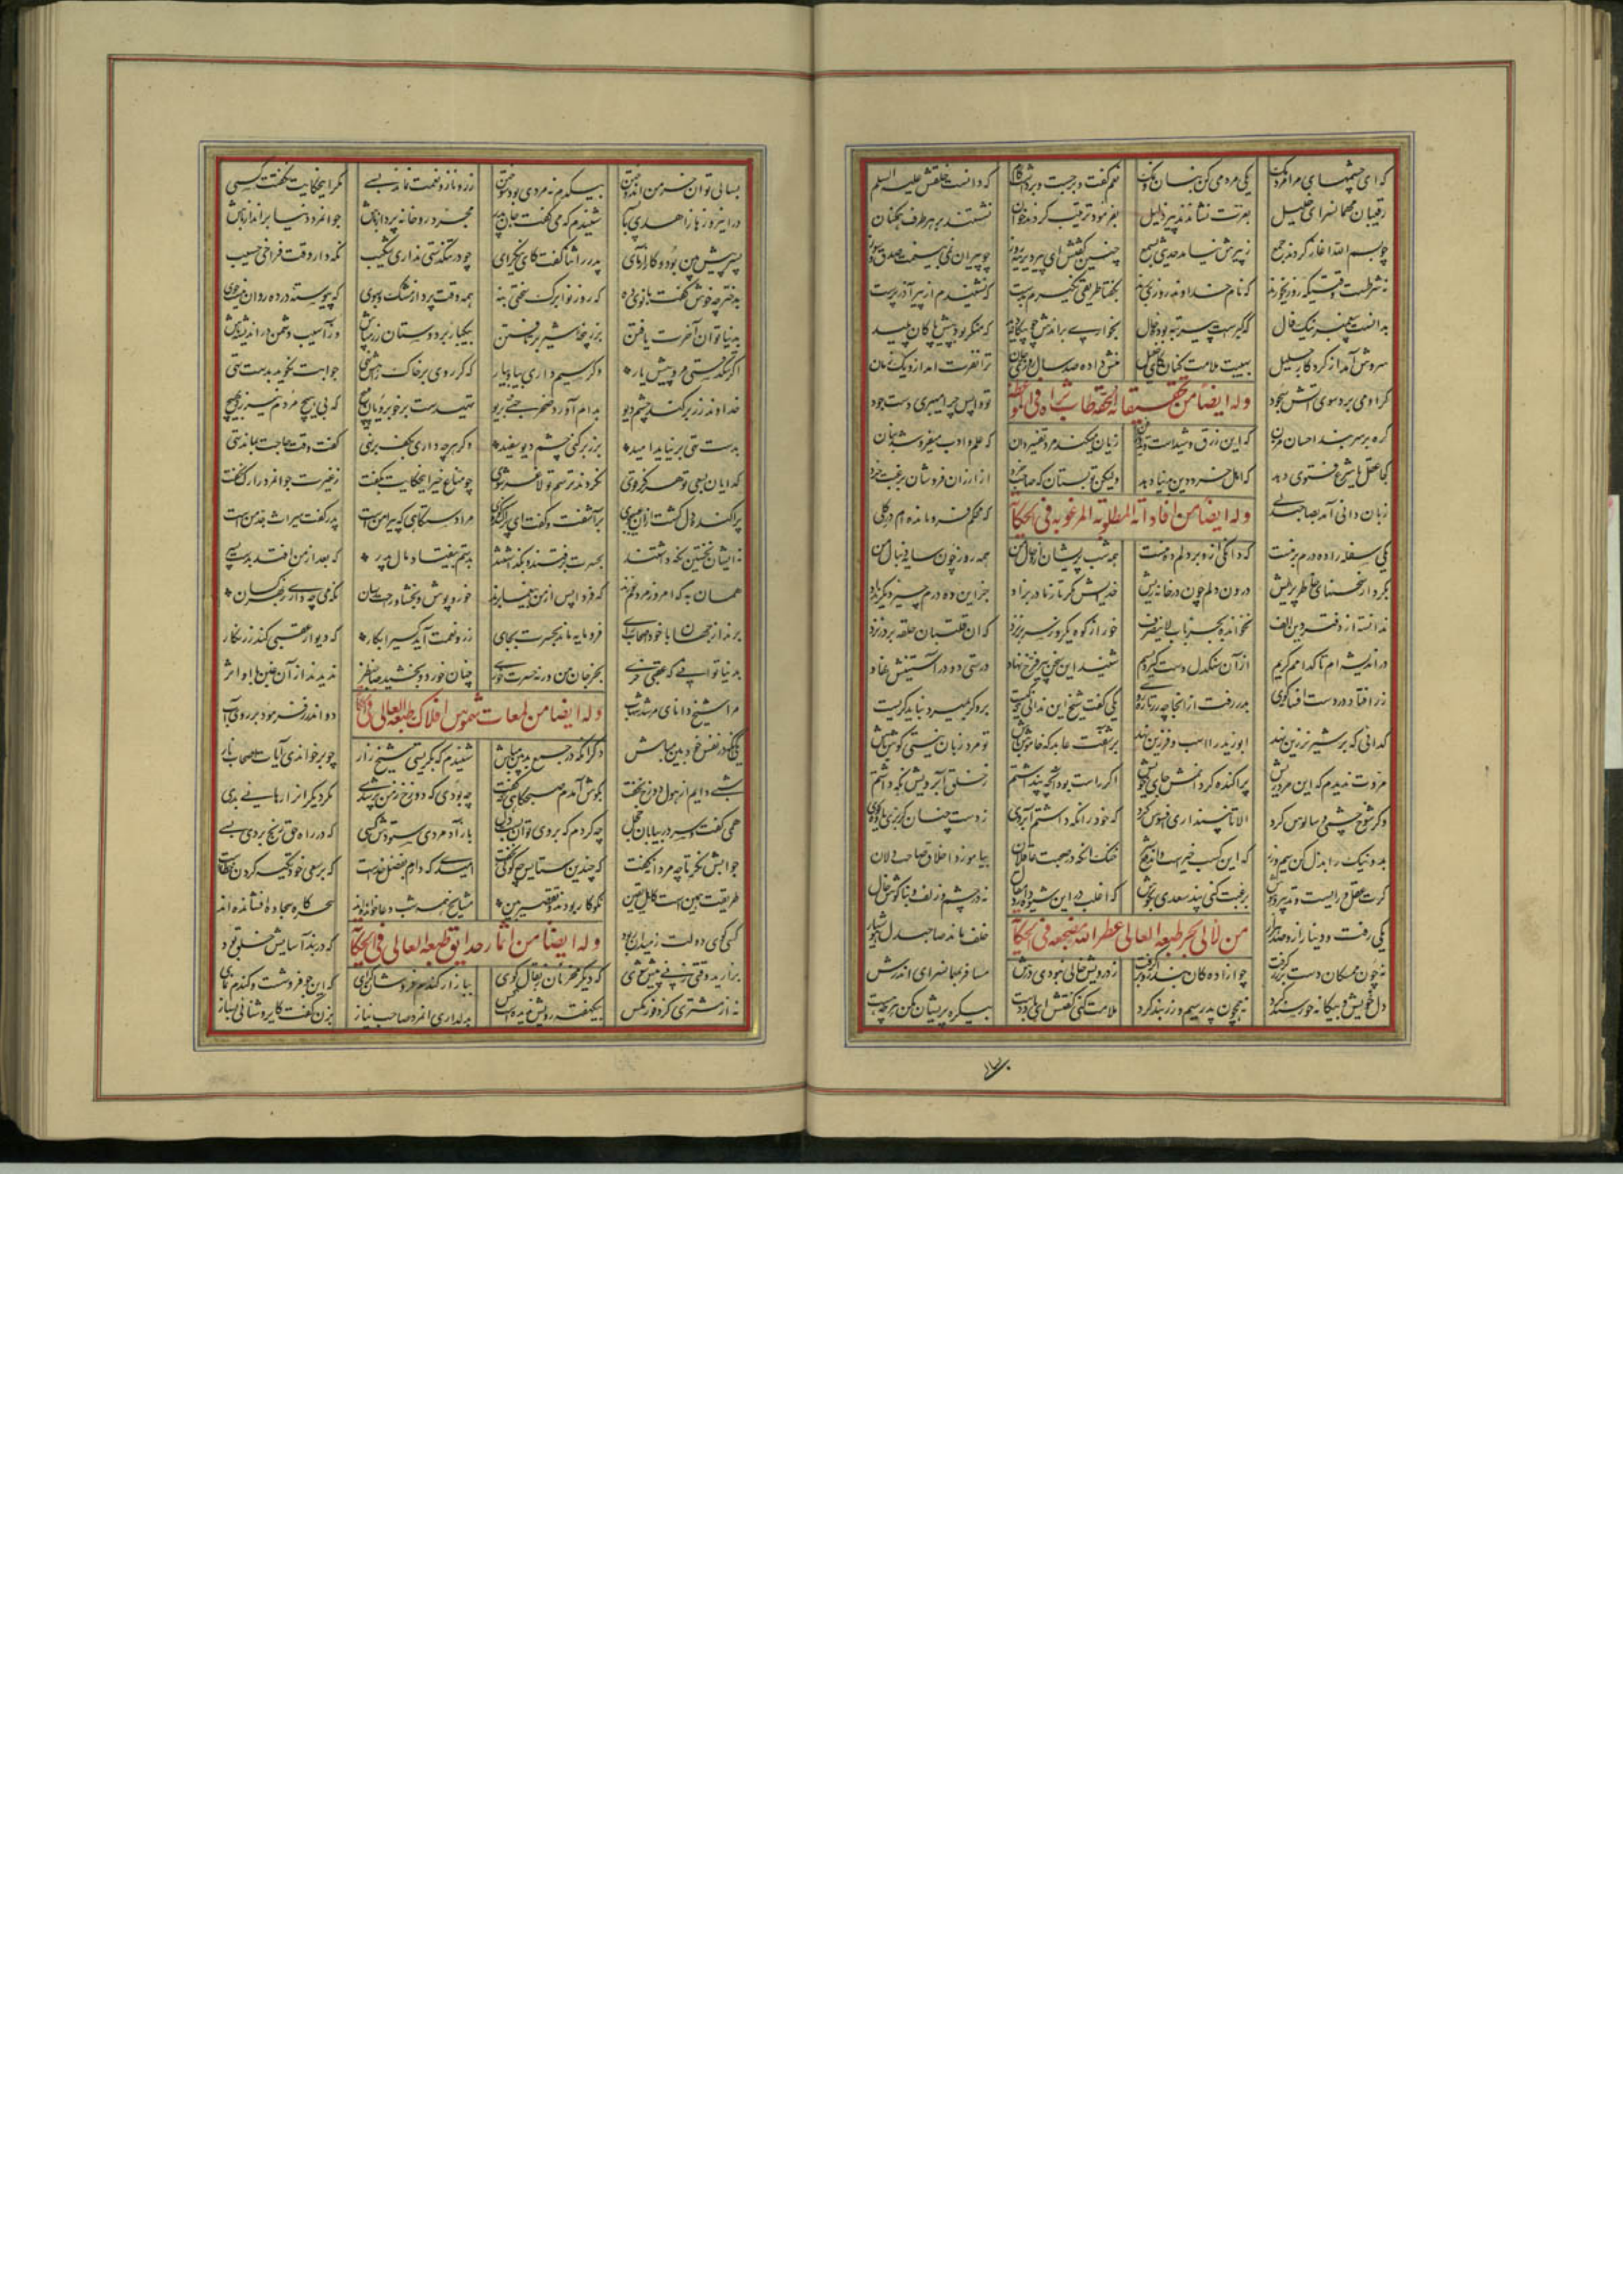 که ای چشمهای مرا مردمک یکی مردمی کن بنان و نمک نعم گفت و برجست و برداشت گام که دانست خلقش علیه السلام
رقیبان مهمانسرای خلیل بعزت نشاندند پیر ذلیل بفرمود ترتیب کردند خوان نشستند بر هر طرف همکنان
چو بسم الله آغاز کردند جمع ز پیرش نیامد حدیثی بسمع چنین گفتش ای پیر دیرینه روز چو پیران نمی بینمت صدق و سوز
نه شرطست وقتیکه روزی خوری که نام خداوند روزی بری بگفتا نگیرم طریقی بدست که نشنیدم از پیر آذرپرست
بدانست پیغمبر نیک فال که گبرست پیر تبه بوده حال بخواری براندش چو بیگانه دید که منکر بود پیش پاکان پلید
سروش آمد از کردگار جلیل بهیبت ملامت کنان کای خلیل منش داده صد سال روزی و جان ترا نفرت آمد ازو یک زمان
گر او می برد سوی آتش سجود تو واپس چرا میبری دست جود
وله ایضا من تحقیقاته الحقه طاب ثراه فی الموعظه
گره بر سر بند احسان مزن که این زرق و شیدست و آن مکر و فن زیان میکند مرد تفسیردان که علم و ادب میفروشد بنان
کجا عقل یا شرع فتوی دهد که اهل خرد دین بدنیا دهد ولیکن تو بستان که صاحب خرد از ارزان فروشان برغبت خرد
وله ایضا من افاداته المطلوبه المرغوبه فی الحکایة
زبان دانی آمد بصاحبدلی که محکم فرومانده ام در گلی
یکی سفله را ده درم بر منست که دانگی ازو بر دلم ده منست همه شب پریشان ازو حال من همه روز چون سایه دنبال من
بکرد از سخنهای خاطر پریش درون دلم چون در خانه ریش خدایش مگر تا ز مادر بزاد جز این ده درم چیز دیگر نداد
ندانسته از دفتر دین الف نخوانده بجز باب لاینصرف خور از کوه یکروز سر بر نزد که آن قلتبان حلقه بر در نزد
در اندیشه ام تا کدامم کریم از آن سنگدل دست گیرد بسیم شنید این سخن پیر فرخ نهاد درستی دو در آستینش نهاد
زر افتاد در دست افسانه گوی بدر رفت از آنجا چو زر تازه روی یکی گفت شیخ این ندانی که کیست برو گر بمیرد نباید گریست
گدائی که بر شیر نر زین نهد ابو زید را اسب و فرزین نهد برآشفت عابد که خاموش باش تو مرد زبان نیستی گوش باش
اگر راست بود آنچه پنداشتم ز خلق آبرویش نگه داشتم
وگر شوخ چشمی و سالوس کرد الا تا نپنداری افسوس کرد که خود را نگه داشتم آبروی ز دست چنان گربزی یاوه گوی
بد و نیک را بذل کن سیم و زر که این کسب خیرست و آن دفع شر خنک آنکه در صحبت عاقلان بیاموزد اخلاق صاحبدلان
گرت عقل و رایست و تدبیر و هوش برغبت کنی پند سعدی بگوش که اغلب در این شیوه دارد مقال نه در چشم و زلف و بناگوش و خال
من لآلی بحر طبعه العالی عطر الله مضجعه فی الحکایة
یکی رفت و دینار ازو صد هزار خلف ماند صاحبدل هوشیار
نه چون ممسکان دست بر زر گرفت چو آزادگان بند ازو برگرفت ز درویش خالی نبودی درش مسافر بمهمانسرای اندرش
دل خویش و بیگانه خورسند کرد نه همچون پدر سیم و زر بند کرد ملامت کنی گفتش ای باددست بیکره پریشان مکن هر چه هست
بسالی توان خرمن اندوختن بیکدم نه مردی بود سوختن زر و ناز و نعمت نماند بسی مگر اینحکایت نگفتت کسی
در اینروزها زاهدی با پسر شنیدم که می گفت جان پدر مجرد رو خانه پرداز باش جوانمرد دنیا برانداز باش
پسر پیش بین بود و کارآزمای پدر را ثنا گفت کای نیکرای چو در تنگدستی نداری شکیب نگه دار وقت فراخی حسیب
بدختر چه خوش گفت بانوی ده که روز نوا برگ سختی بنه همه وقت پردار مشک و سبوی که پیوسته در ده روان نیست جوی
بدنیا توان آخرت یافتن بزر پنجه شیر برتافتن بیکبار بر دوستان زر مپاش وز آسیب دشمن در اندیشه باش
اگر تنگدستی مرو پیش یار وگر سیم داری بیا و بیار که گر روی بر خاک پایش نهی جوابت نگوید بدست تهی
خداوند زر برکند چشم دیو بدام آورد صخر جنی بریو تهیدست بر خوبرویان مپیچ که بی هیچ مردم نیرزد بهیچ
بدست تهی برنیاید امید بزر برکنی چشم دیو سفید وگر هرچه داری بکف برنهی کفت وقت حاجت بماند تهی
گدایان بسعی تو هرگز قوی نگردند ترسم تو لاغر شوی چو مناع خیر اینحکایت بگفت ز غیرت جوانمرد را رگ نخفت
پراکنده دل گشت از آن عیبجوی برآشفت و گفت ای پراکنده گوی مرا دستگاهی که پیرامن است پدر گفت میراث جد من است
نه ایشان بخست نگه داشتند بحسرت برفتند و بگذاشتند بدستم بیفتاد مال پدر که بعد از من افتد بدست پسر
همان به که امروز مردم خورند که فردا پس از من بیغما برند خور و پوش و بخشا و راحت رسان نگه می چه داری ز بهر کسان
برند از جهان با خود اصحاب رای فرومایه ماند بحسرت بجای زر و نعمت آید کسیرا بکار که دیوار عقبی کند زرنگار
بدنیا توانی که عقبی خری بخر جان من ورنه حسرت خوری چنان خورد و بخشید صاحب نظر ندیدند از آن عین با او اثر
وله ایضا من لمعات شموس افلاک طبعه العالی فی الحکایة
مرا شیخ دانای مرشد شهاب دو اندرز فرمود بر روی آب
یکی آنکه در نفس خودبین مباش دگر آنکه در جمع بدبین مباش شنیدم که بگریستی شیخ زار چو برخواندی آیات اصحاب نار
شبی دانم از هول دوزخ نخفت بگوش آمدم صبحگاهی که گفت چه بودی که دوزخ ز من پر شدی مگر دیگران را رهائی بدی
همی گفت و سر در بیابان خجل چه کردم که بر وی توان بست دل بارآد مردی ستودش کسی که در راه حق رنج بردی بسی
جوابش نگر تا چه مردانه گفت که چندین ستایش چه گوئی نگفت امیدی که دارم بفضل خداست که بر سعی خود تکیه کردن خطاست
طریقت همین است کاهل یقین نکوکار بودند و تقصیربین مشایخ همه شب دعا خوانده اند سحرگاه سجاده افشانده اند
کسی گوی دولت ز میدان ربود که در بند آسایش خلق بود
وله ایضا من اثمار حدایق طبعه العالی فی الحکایة
بزارید وقتی زنی پیش شوی که دیگر مخر نان ز بقال کوی ببازار گندم فروشان گرای که این جو فروشست و گندم نمای
نه از مشتری کز دحام مگس بیکهفته رویش ندیدست کس بدلداری آنمرد صاحب نیاز بزن گفت کای روشنائی بساز